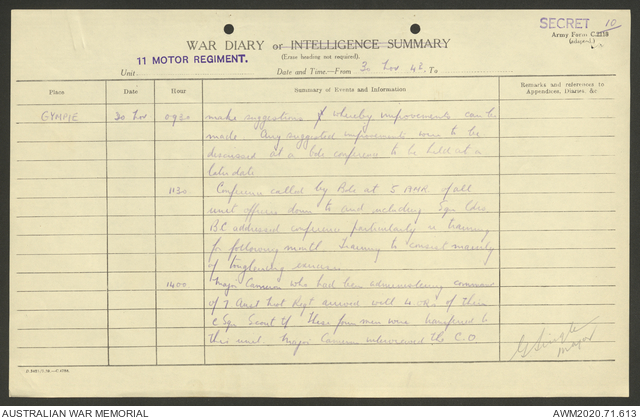 SECRET 10
Army Form C.2118
(adapted.)
WAR DIARY or INTELLIGENCE SUMMARY
(Erase heading not required).
11 MOTOR REGIMENT.
Unit
Date and Time.—From 30 Nov 42. To
Place Date Hour Summary of Events and Information Remarks and references to
Appendices, Diaries, &c
GYMPIE 30 Nov 0930 make suggestions whereby improvements can be
made. Any suggested improvements were to be
discussed at a Bde conference to be held at a
later date.
1130 Conference called by Bde at 5 of all
unit officers down to and including Sqn Ldrs.
BC addressed conference particularly on training
for following month. Training to consist mainly
of toughening exercises
1400 Major Cameron who had been administering command
of 7 Aust Mot Regt arrived with 4 ORs of their
Sqn Scout These four men were transferred to
this unit. Major Cameron interviewed the C.O
Major
AUSTRALIAN WAR MEMORIAL
AWM2020.71.613